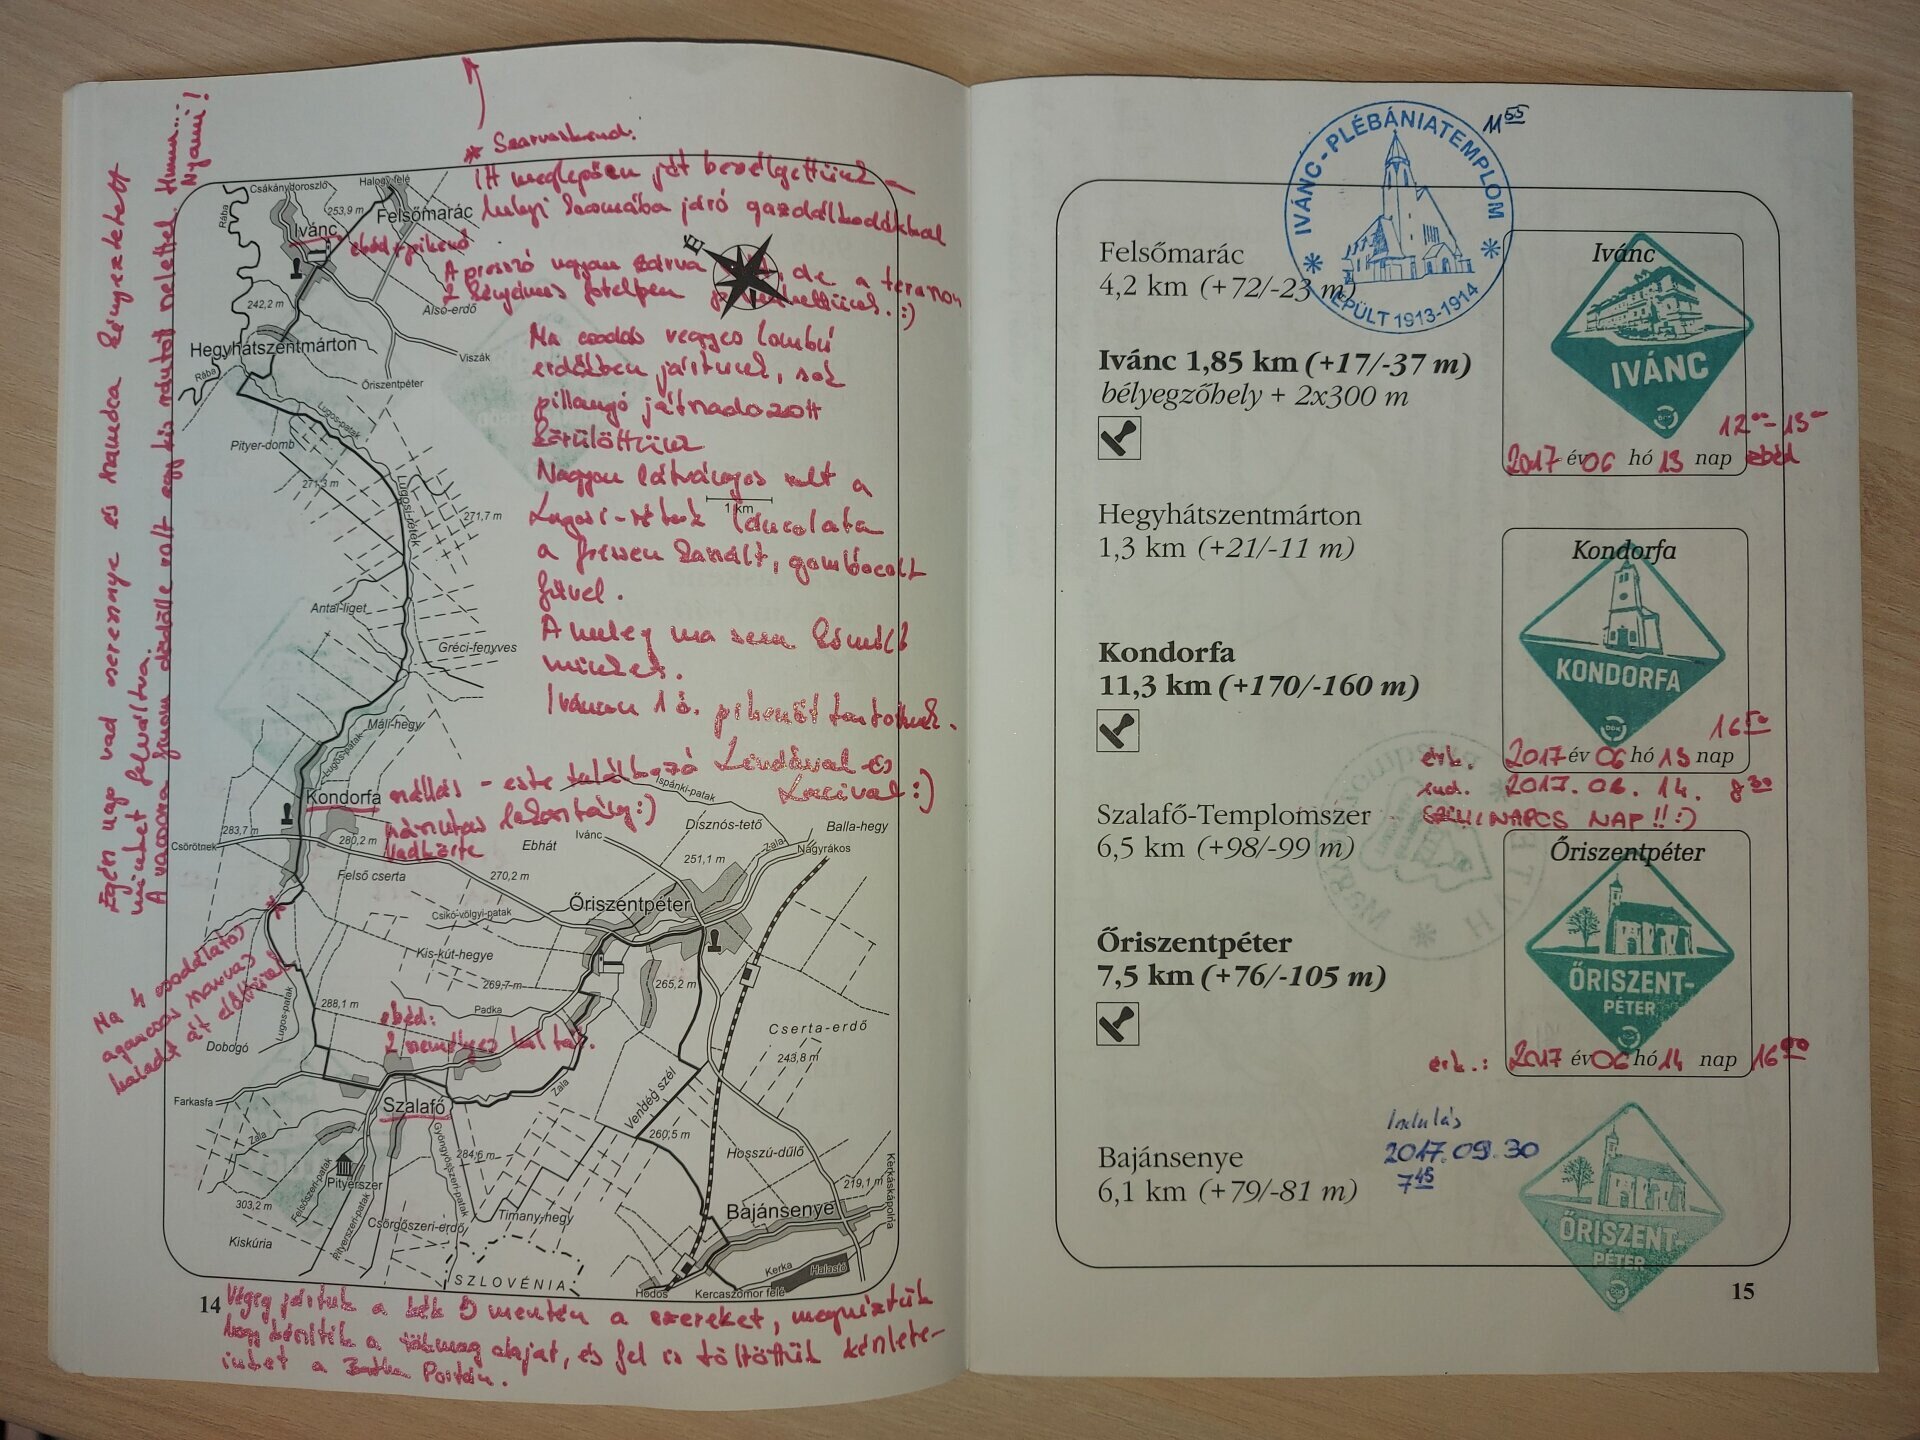 * Szarvaskend:
Itt meglepően jót beszélgettünk
helyi kocsmába járó gazdálkodókkal
A presszó ugyan zárva de a teraszon
2 kényelmes fotelpen :)
Ma csodás vegyes lombú
erdőkben jártunk, sok
pillangó játszadozott
körülöttünk
Nagyon látványos volt a
Lugosi-rétek láncolata
a frissen kaszált, gombócolt
fűvel.
A meleg ma sem kímélt
minket.
Iváncon 1 ó. pihenőt tartottunk.
szállás - este találkozó Lindával és
Lacival :)
vadkörte
Egész nap vad cseresznye és szamóca kényeztetett
minket felváltva.
A vacsora finom dödölle volt egy kis sült nelettel. Hmm...
Nyami!
Ma 4 csodálatos
agancsos szarvas
haladt át előttünk
ebéd + pihenő
ebéd:
Csákánydoroszló
Halogy felé
Rába
253,9 m
Felsőmarác
Ivánc
É
242,2 m
Alsó-erdő
Hegyhátszentmárton
Viszák
Rába
Őriszentpéter
Lugos-patak
Pityer-domb
271,3 m
Lugosi-rétek
271,7 m
1 km
Antal-liget
Gréci-fenyves
Máli-hegy
Lugos-patak
Kondorfa
Ispánki-patak
283,7 m
Csörötnek
280,2 m
Ebhát
Ivánc
Disznós-tető
Balla-hegy
Zala
Nagyrákos
251,1 m
Felső cserta
270,2 m
Őriszentpéter
Csikó-völgyi-patak
Kis-kút-hegye
269,7 m
265,2 m
288,1 m
Lugos-patak
Padka
Cserta-erdő
Dobogó
243,8 m
Farkasfa
Szalafő
Zala
Vendég szél
Zala
Gyöngyösszeri-patak
284,6 m
260,5 m
Hosszú-dűlő
Pityerszer
Felsőszeri-patak
Pityerszeri-patak
303,2 m
Csörgőszeri-erdő
Timány-hegy
219,1 m
Kerkáskápolna
Bajánsenye
Kiskúria
SZLOVÉNIA
Kerka
Halastó
Hodos
Kercaszomor felé
14
Végig jártuk a kék mentén a szereket, megnéztük
hogy készítik a tökmag olajat, és fel is töltöttük készlete-
inket a Portán.
IVÁNC-PLÉBÁNIATEMPLOM
ÉPÜLT 1913-1914
11 55
Felsőmarác
4,2 km (+72/-23 m)
Ivánc
IVÁNC
DDK
Ivánc 1,85 km (+17/-37 m)
bélyegzőhely + 2x300 m
12 00 - 13 00
2017 év 06 hó 13 nap ebéd
Hegyhátszentmárton
1,3 km (+21/-11 m)
Kondorfa
KONDORFA
DDK
Kondorfa
11,3 km (+170/-160 m)
16 50
érk. 2017 év 06 hó 13 nap
ind. 2017. 06. 14. 8 30
SZÜLINAPOS NAP!! :)
Szalafő-Templomszer
6,5 km (+98/-99 m)
Őriszentpéter
ŐRISZENT-
PÉTER
DDK
Őriszentpéter
7,5 km (+76/-105 m)
érk.: 2017 év 06 hó 14 nap 16 00
Indulás
2017.09.30
7 45
Bajánsenye
6,1 km (+79/-81 m)
ŐRISZENT-
PÉTER
DDK
15